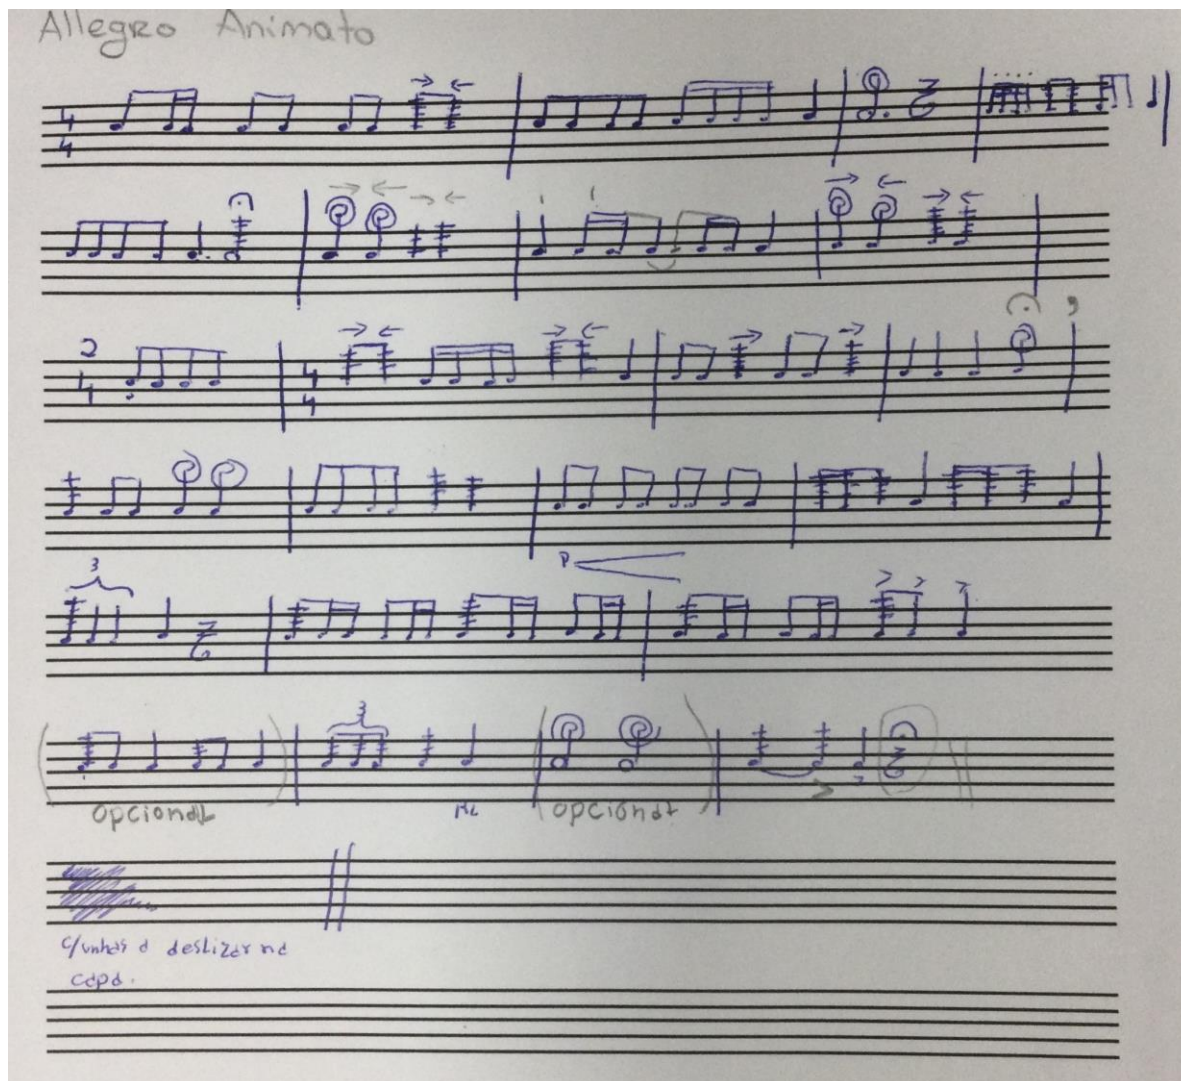 Allegro Animato
4
4
2
4
4
4
P
3
3
opcional
opcional
c/unhas a deslizar na
capa.